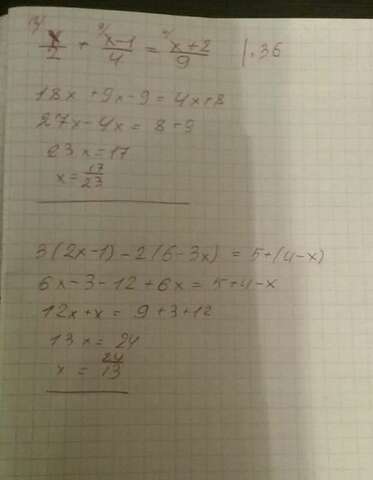 x/2 + 9/ x-1/4 = 4/ x+2/9 | · 36
18x + 9x - 9 = 4x + 8
27x - 4x = 8 + 9
23x = 17
x = 17/23
3(2x-1) - 2(6-3x) = 5+(4-x)
6x - 3 - 12 + 6x = 5 + 4 - x
12x + x = 9 + 3 + 12
13x = 24
x = 24/13